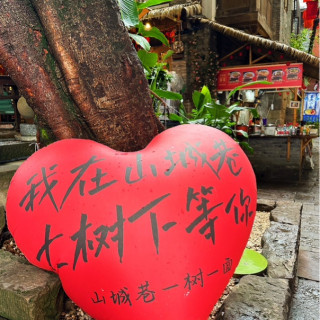 我在山城巷
大树下等你
山城巷一树一面